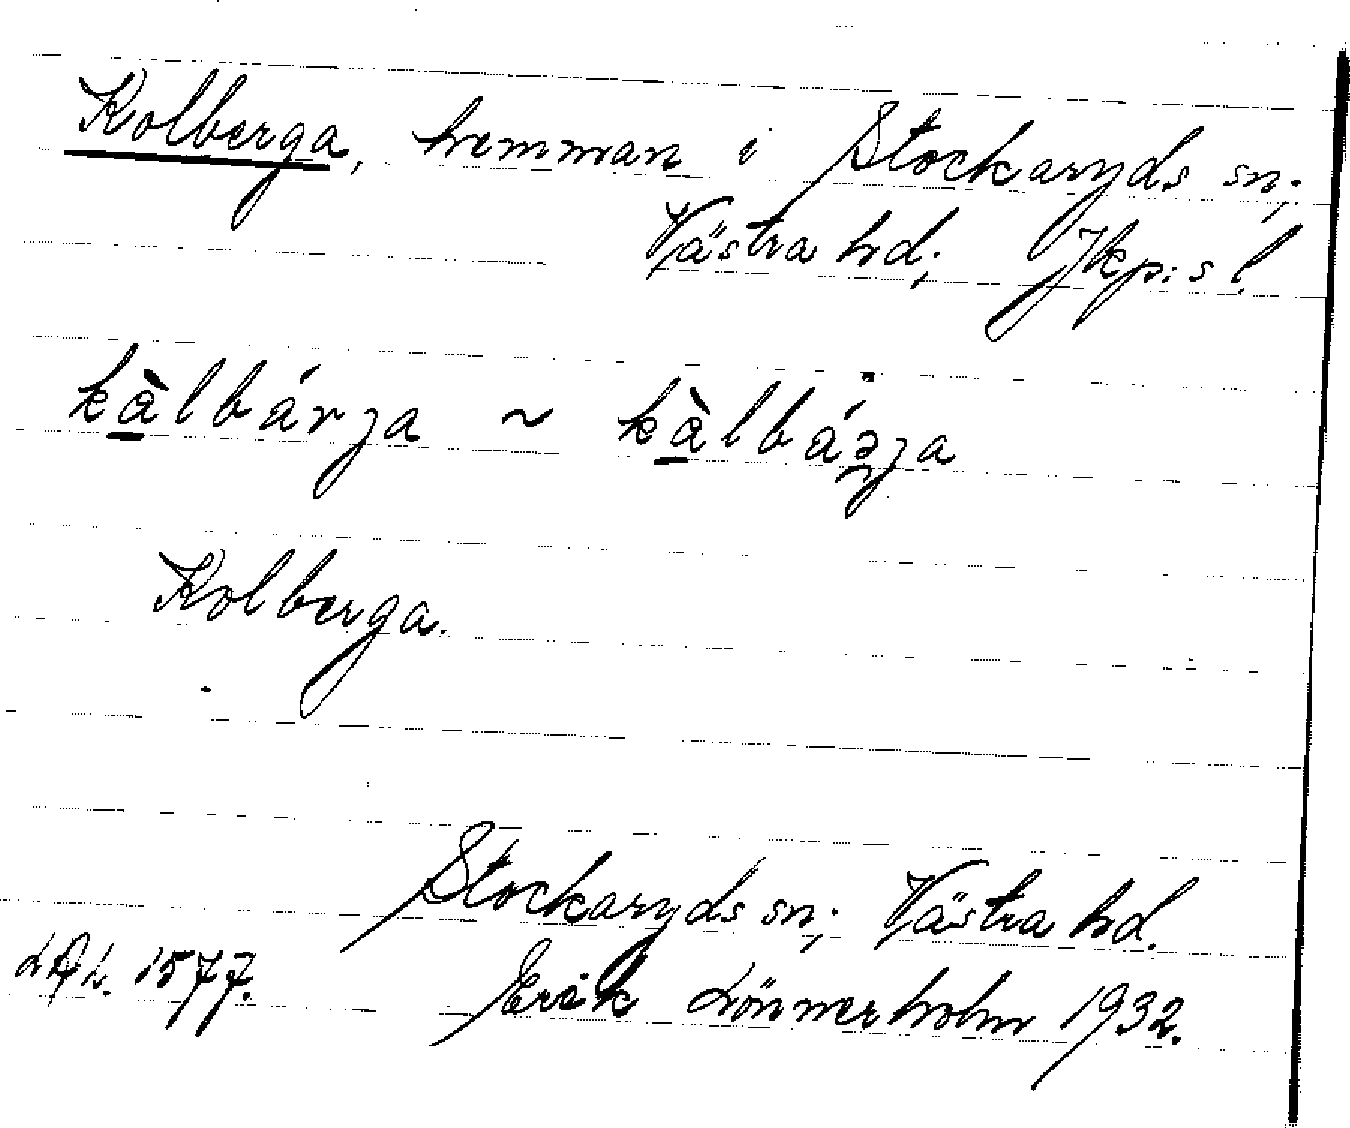 Kolberga, hemman i Stockaryds sn;
Västra hd; Jkp:s l.
kàlbárja ~ kàlbáəja
Kolberga.
Stockaryds sn; Västra hd.
LAL. 1577. Erik Lönnerholm 1932.